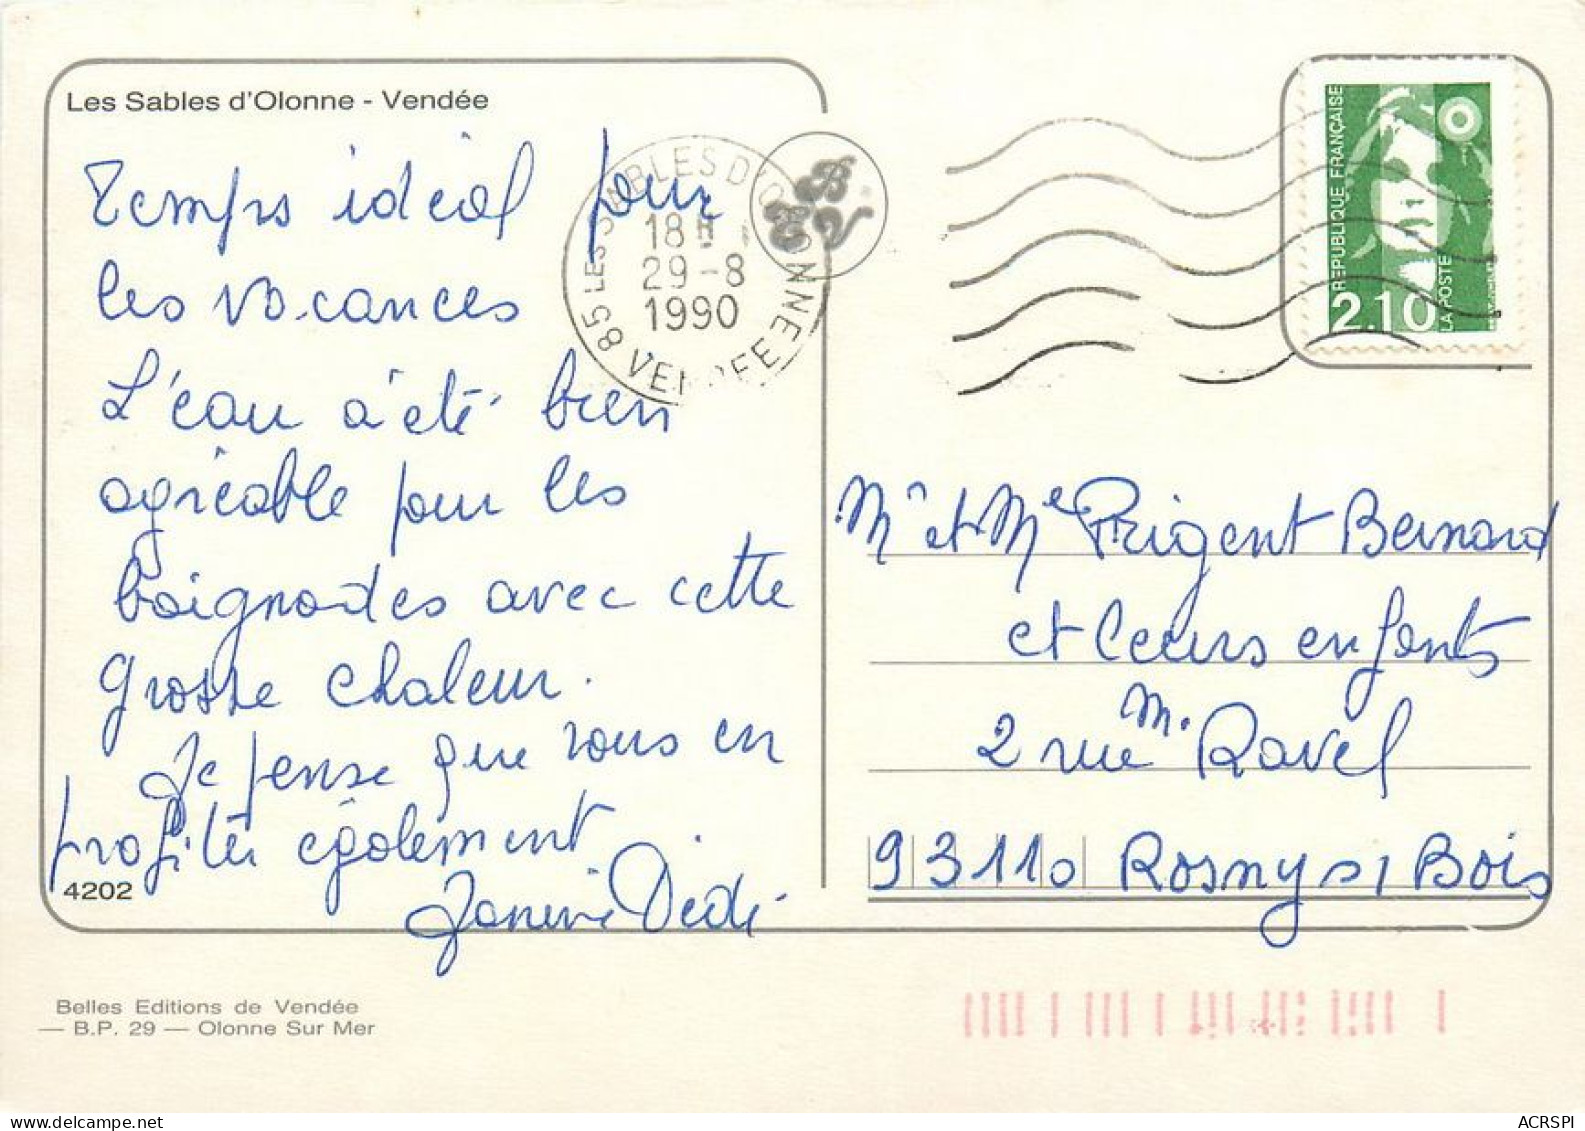 Les Sables d'Olonne - Vendée
Temps idéal pour
les vacances
L'eau à été bien
agréable pour les
baignades avec cette
grosse chaleur.
Je pense que vous en
profiter également
Janine Dédé
4202
Belles Editions de Vendée
— B.P. 29 — Olonne Sur Mer
85 LES SABLES D'OLONNE
18H
29-8
1990
VENDEE
RÉPUBLIQUE FRANÇAISE
2.10
LA POSTE
Mr et Me Prigent Bernard
et leurs enfants
2 rue M. Ravel
93110 Rosny s/ Bois
ACRSPI